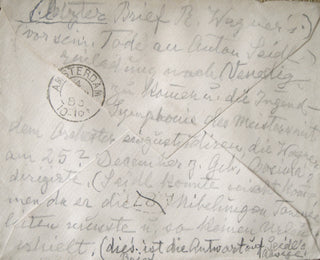 Letzter Brief R. Wagner's.
(vor sein. Tode an Anton Seidl
Einladung nach Venedig
AMSTERDAM
zu kommen u. die Jugend-
Symphonie des Meisters mit
dem Orchester einzustudiren, die Wagner
am 25? Dezember z. Geb. Cosima's
dirigirte. (Seidl konnte nicht
men da er die Nibelungen
leiten musste u. so keinen Urlaub
erhielt. (dies ist die Antwort auf Seidl's